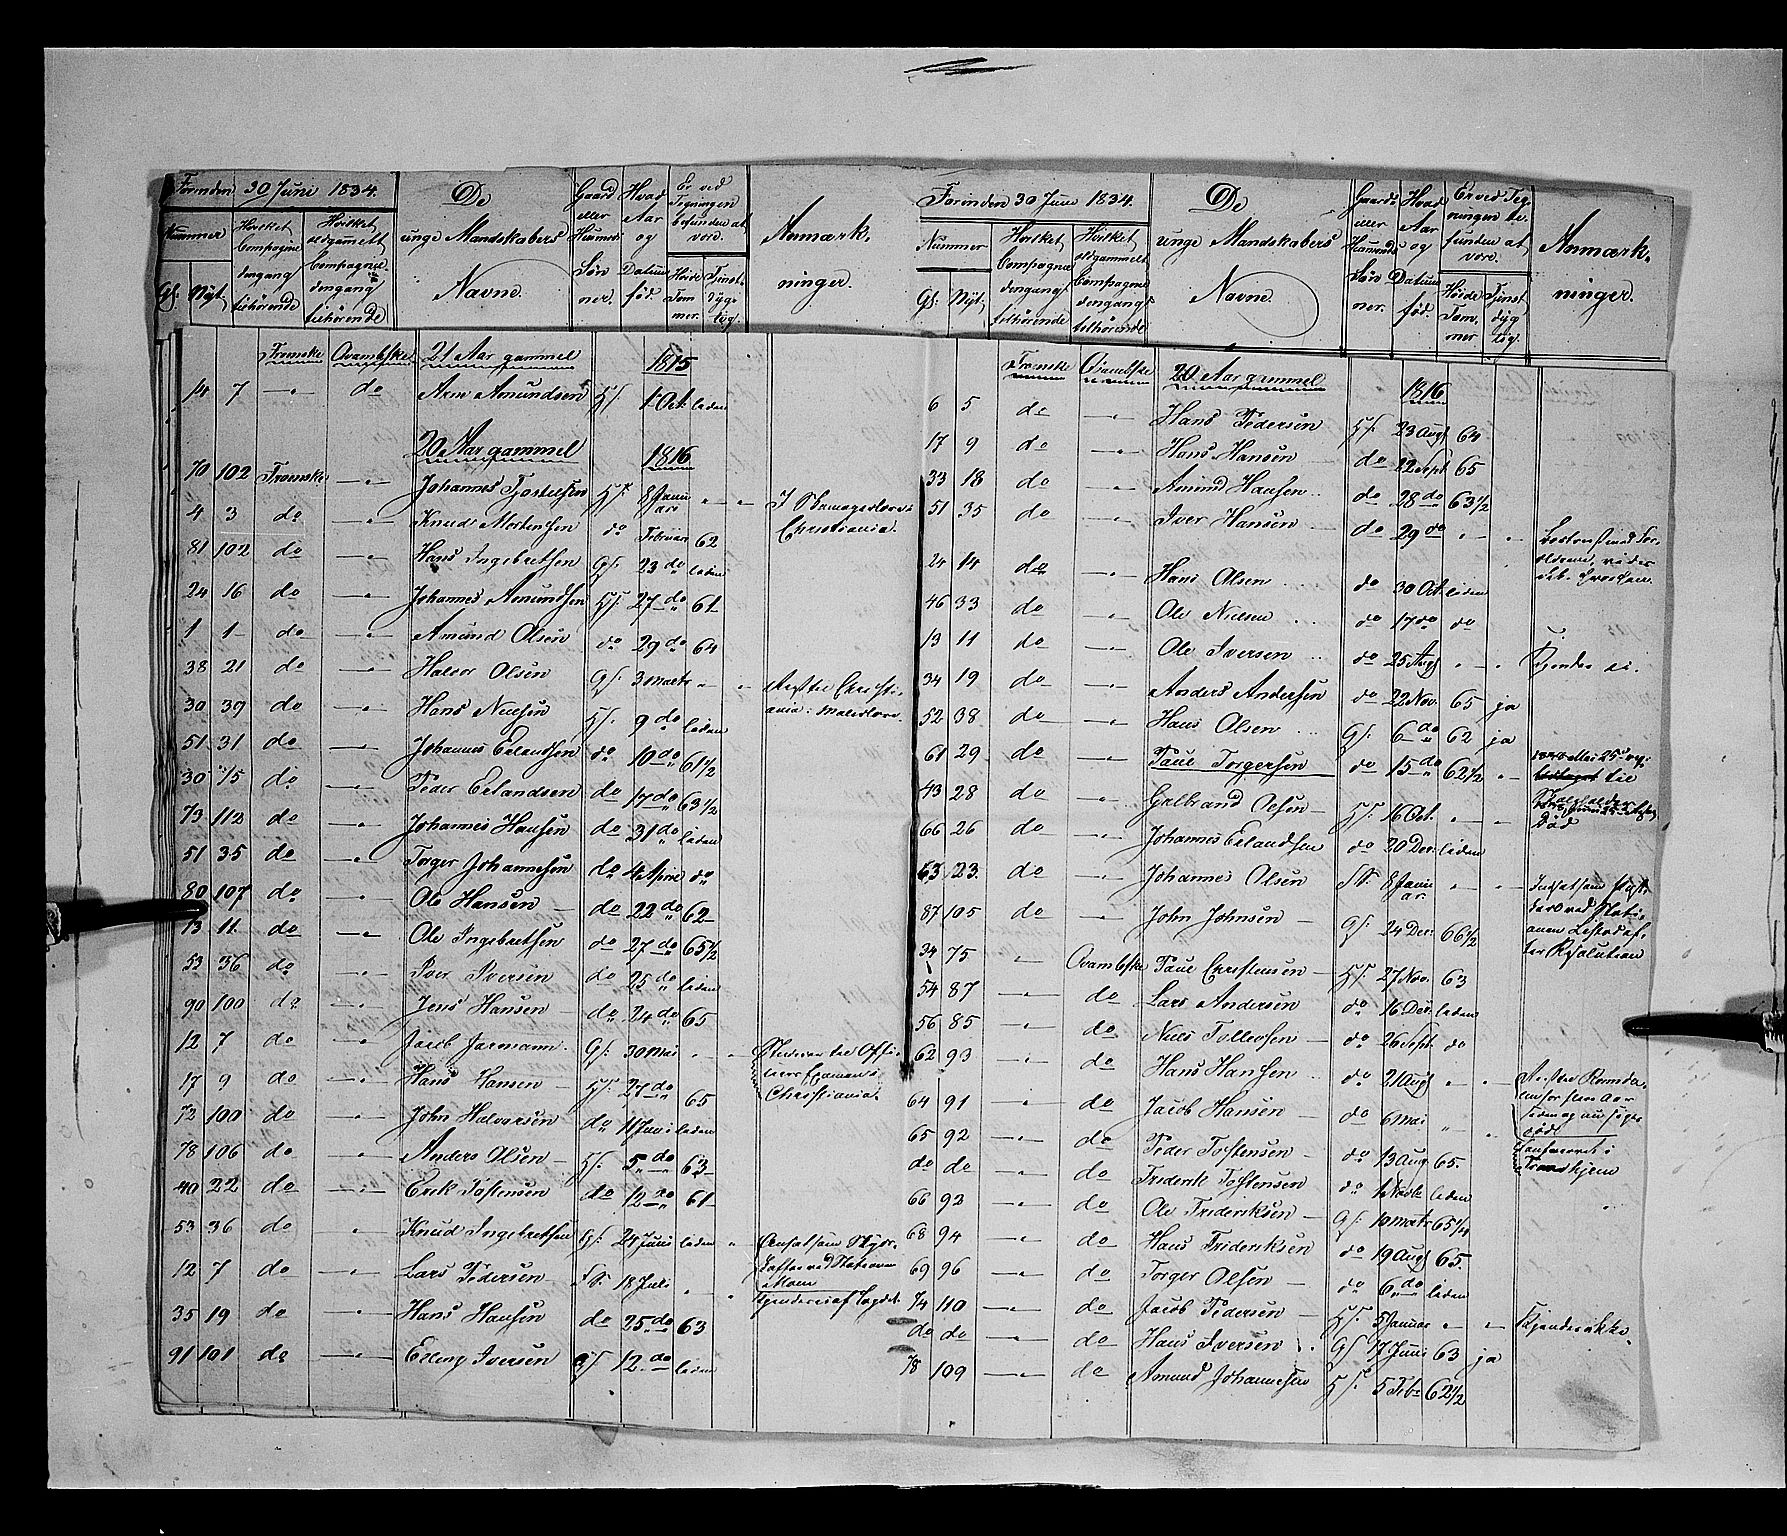 Forinden 30 Juni 1834.
Nummer
Gl: Nyt.
Hvilket Compagnie dengang tilhörende
Hvilket oldgamelt Compagnie dengang tilhörende
De unge Mandskabers Navne.
Gaard eller Huusmd: Sönner.
Hvad Aar og Datum född.
Er ved Tegningen befunden at være.
Höide Tommer.
Tjenstdygtig.
Anmærkninger.
Tromske Ovambske 21 Aar gammel 1815
14 7 — " — do Arne Amundsen H/: 1 Oct. liden
20 Aar gammel 1816
70 102 Tromske — " — Johannes Tostelsen H/: 8 Januari " " I Skomagerlære i Christiania.
4 3 do — " — Knud Mortensen do Februar 62
81 102 do — " — Hans Ingebretsen G/: 23 do liden
24 16 do — " — Johannes Amundsen H/: 27 do 61
1 1 do — " — Amund Olsen do 29 do 64
38 21 do — " — Halvor Olsen G/: 3 Marts " "
30 39 do — " — Hans Nielsen H/: 9 do liden
51 31 do — " — Johannes Erlandsen do 10 do 61 1/2
30 75 do — " — Peder Erlandsen do 17 do 63 1/2
73 112 do — " — Johannes Hansen do 31 do liden
51 35 do — " — Torger Johannesen do 4 April do
80 107 do — " — Ole Hansen do 22 do 62
13 11 do — " — Ole Ingebretsen do 27 do 65 1/2
53 36 do — " — Iver Iversen do 25 do liden
90 100 do — " — Jens Hansen do 24 do 65
12 7 do — " — Jacob Jarmann G/: 30 Mai " " Studerer til Officiers Examen i Christiania.
17 9 do — " — Hans Hansen H/: 27 do 65
72 100 do — " — John Halvorsen do 11 Juni liden
78 106 do — " — Anders Olsen H/: 5 do 63
40 22 do — " — Erik Tostensen do 12 do 61
53 36 do — " — Knud Ingebretsen G/: 24 Juni liden "
12 7 do — " — Lars Pedersen 18 Juli " " Kjendes ei af Lagdet.
35 19 do — " — Hans Hansen do 25 do 63
91 101 do — " — Erling Iversen G/ 12 do liden
Forinden 30 Juni 1834.
Nummer
Gl: Nyt.
Hvilket Compagnie dengang tilhörende
Hvilket oldgammelt Compagnie dengang tilhörende
De unge Mandskabers Navne.
Gaards eller Huusmands Sönner.
Hvad Aar og Datum född.
Er ved Tegningen befunden at være.
Höide Tommer
Tjenstdygtig.
Anmærkninger.
Tromske 20 Aar gammel 1816
6 5 do — " — Hans Pedersen H/: 23 Aug 64
17 9 do — " — Hans Hansen do 22 Sept. 65
33 18 do — " — Amund Hansen do 28 do 63 1/2
51 35 do — " — Iver Hansen do 29 do " "
24 14 do — " — Hans Olsen do 30 Oct. liden
46 33 do — " — Ole Nielsen do 17 do do
13 11 do — " — Ole Iversen do 25 Aug " " Kjendes ei.
34 19 do — " — Anders Andersen do 22 Nov. 65 ja
52 38 do — " — Hans Olsen G/: 6 do 62 ja
61 29 do — " — Paul Torgersen do 15 do 62 1/2 "
43 28 do — " — Gulbrand Olsen H/: 16 Oct. " " Död
66 26 do — " — Johannes Erlandsen do 20 Dec. liden
63 23. do — " — Johannes Olsen 8 Januar " "
87 105 do — " — John Johnsen G/: 24 Dec: 66 1/2
34 75 " Ovambske Paul Christensen H/: 27 Nov. 63
54 87 — " — do Lars Andersen do 16 Dec. liden
56 85 — " — do Niels Tollevsen do 26 Sept. do
62 93 — " — do Hans Hansen do 21 Aug " "
64 91 — " — do Jacob Hansen do 6 Mai " "
65 92 — " — do Peder Tostensen do 13 Aug 65.
do do — " — do Fridenk Tostensen do 1 Marts liden
66 92 — " — do Ole Frideriksen G/: 10 Marts 65 1/4
68 94 — " — do Hans Frideriksen do 19 Aug 65.
69 96 — " — do Torger Olsen do 6 do liden
74 110 — " — do Jacob Pedersen H/: 5 Januar " " Kjendes ikke
do do — " — do Hans Iversen G/ 17 Juni 63 ja
78 109 — " — do Amund Johannesen H/: 5 Feb: 62 1/2